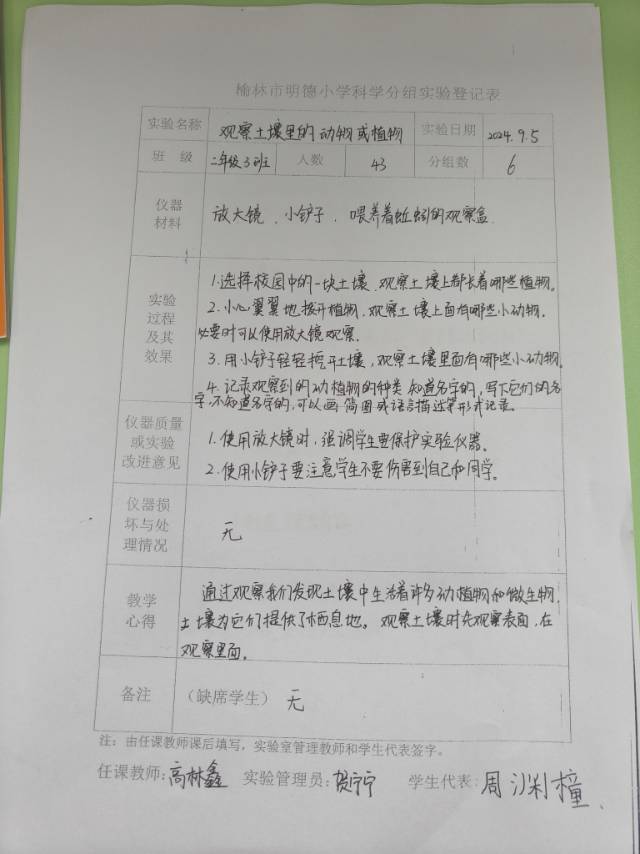 榆林市明德小学科学分组实验登记表
实验名称 观察土壤里的动物或植物 实验日期 2024.9.5
班 级 二年级3班 人数 43 分组数 6
仪器
材料
放大镜、小铲子、喂养着蚯蚓的观察盒
实验
过程
及其
效果
1.选择校园中的一块土壤,观察土壤上都长着哪些植物。
2.小心翼翼地拨开植物,观察土壤上面有哪些小动物,
必要时可以使用放大镜观察.
3.用小铲子轻轻挖开土壤,观察土壤里面有哪些小动物。
4.记录观察到的动植物的种类 知道名字的,写下它们的名
字,不知道名字的,可以画简图或语言描述等形式记录。
仪器质量
或实验
改进意见
1.使用放大镜时,强调学生要保护实验仪器。
2.使用小铲子要注意学生不要伤害到自己和同学。
仪器损
坏与处
理情况
无
教学
心得
通过观察我们发现土壤中生活着许多动植物和微生物,
土壤为它们提供了栖息地。观察土壤时先观察表面,在
观察里面。
备注 (缺席学生) 无
注:由任课教师课后填写,实验室管理教师和学生代表签字。
任课教师:高林鑫 实验管理员:贺宁宁 学生代表:周